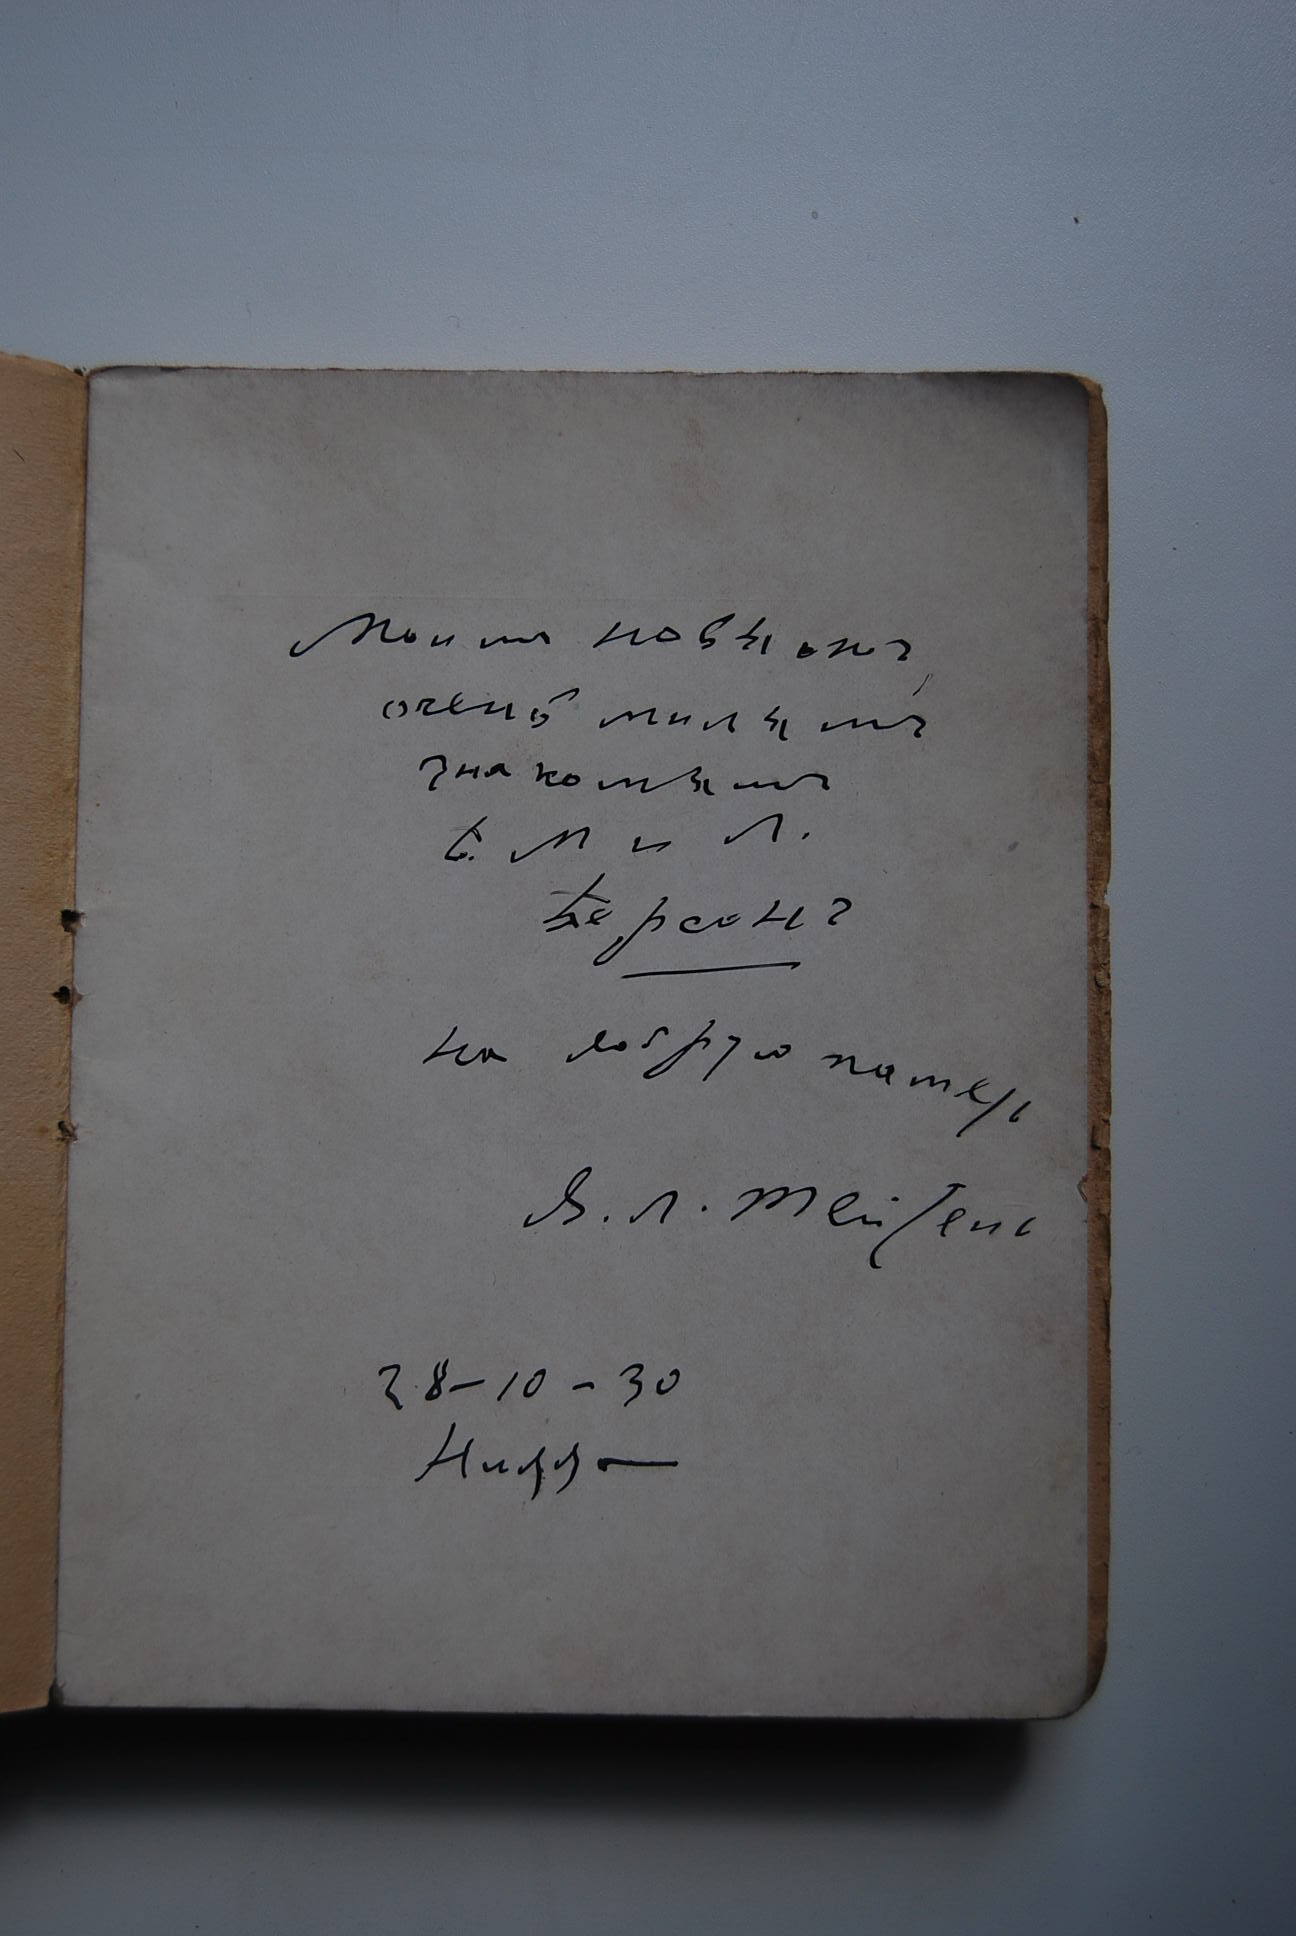 Моимъ новымъ,
очень милымъ
знакомымъ
Е. М и Л.
Берсонъ
на добрую память
В. Л.
28-10-30
Ницца